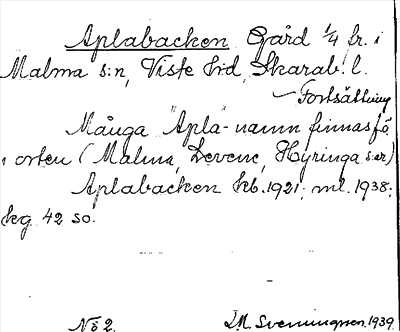 Aplabacken Gård 1/4 hr. i
Malma s:n, Viste hd, Skarab. l.
Fortsättning
Många "Apla"-namn finnas på
orten (Malma, Levene, Hyringa s:ar)
Aplabacken kb. 1921; ml. 1938;
kg. 42 so.
No 2. I.M. Svenningsen. 1939.